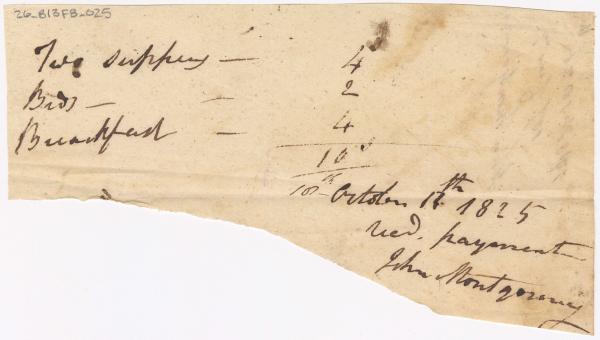 26-813F8-025
Two suppers — 4s
Beds — — 2
Breackfast — 4
10s
October 12th 1825
recd. payment
John Montgomery